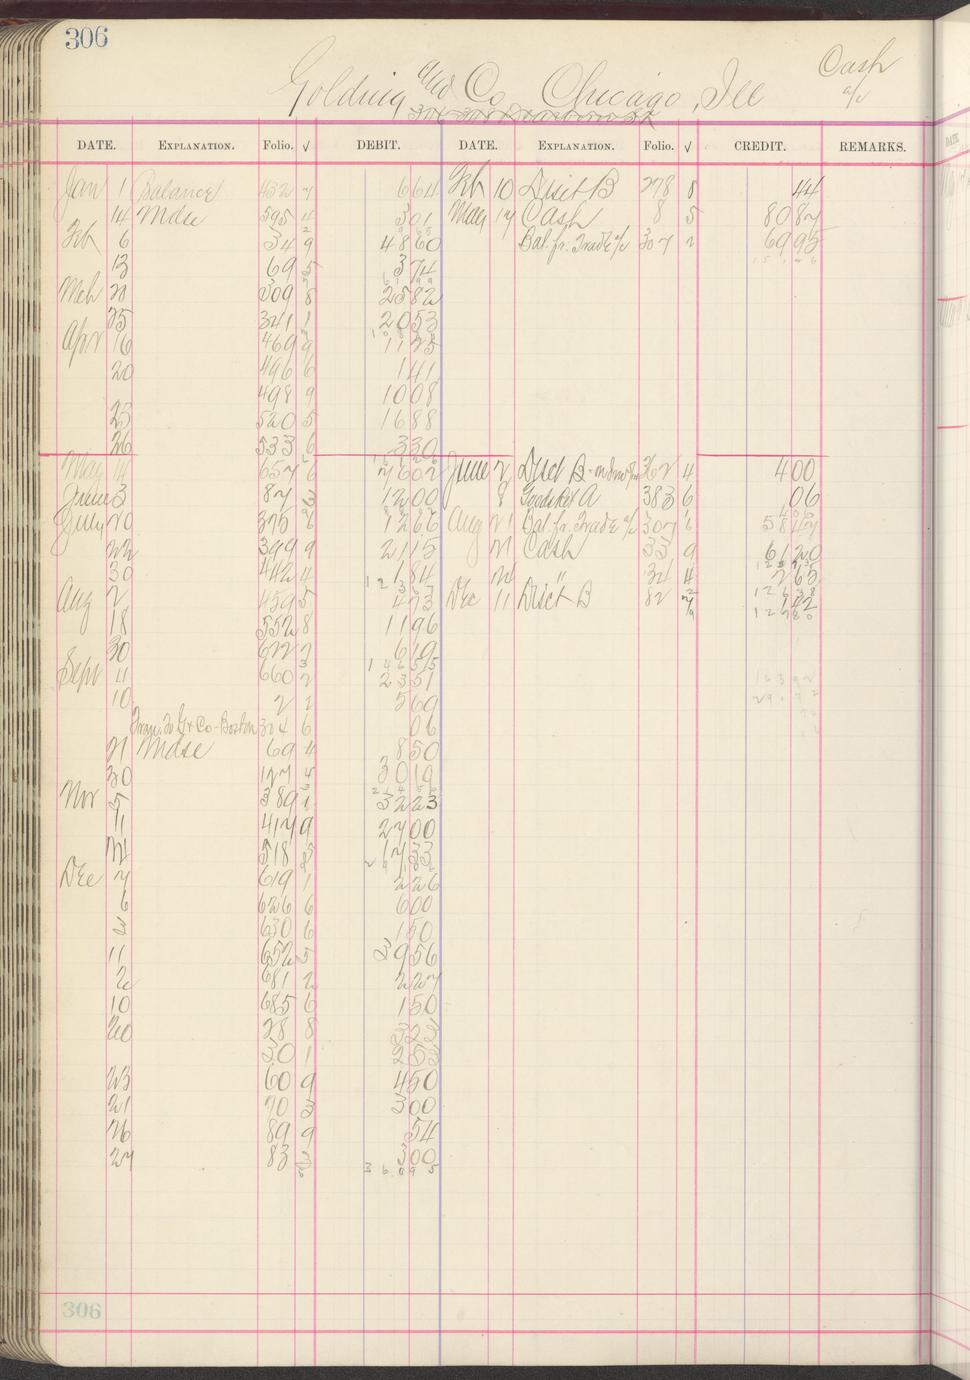 306
Golding and Co Chicago, Ill Cash a/c
DATE. EXPLANATION. Folio. √ DEBIT. DATE. EXPLANATION. Folio. √ CREDIT. REMARKS.
Jan 1 Balance 432 7 6 64 Feb 10 Disct B 278 8 44
14 Mdse 595 4 3 01 May 14 Cash 8 5 80 87
Feb 6 34 9 48 60 Bal. fr. Trade a/c 307 2 69 95
13 69 5 3 74
Mch 21 309 8 25 82
25 341 1 20 53
Apr 16 469 11 25
20 496 6 1 41
498 9 10 08
23 520 5 16 88
26 533 6 3 30
May 14 657 6 76 02 June 2 Disct B 362 4 4 00
June 3 87 12 00 8 Goods Ret A 383 6 06
July 20 375 6 12 66 Aug 21 Bal. fr. Trade a/c 307 6 58 47
22 399 9 21 15 21 Cash 33 9 61 20
30 442 4 1 84 24 " 34 4 2 65
Aug 2 459 5 4 73 Dec 11 Disct B 82 1 42
18 552 8 11 96
30 622 7 6 19
Sept 11 660 2 23 51
10 2 2 5 69
Tran. to G & Co - Boston 304 6 06
21 Mdse 69 4 8 50
30 127 4 30 19
Nov 5 389 1 52 23
11 417 9 27 00
21 518 5 17 33
Dec 7 619 1 2 26
6 626 6 6 00
2 630 6 1 50
11 652 5 39 56
2 681 2 2 27
10 685 6 1 50
20 28 8 3 23
30 1 2 53
23 60 9 4 50
21 70 3 3 00
26 89 9 54
27 83 3 00
3 6 0 9 5
306